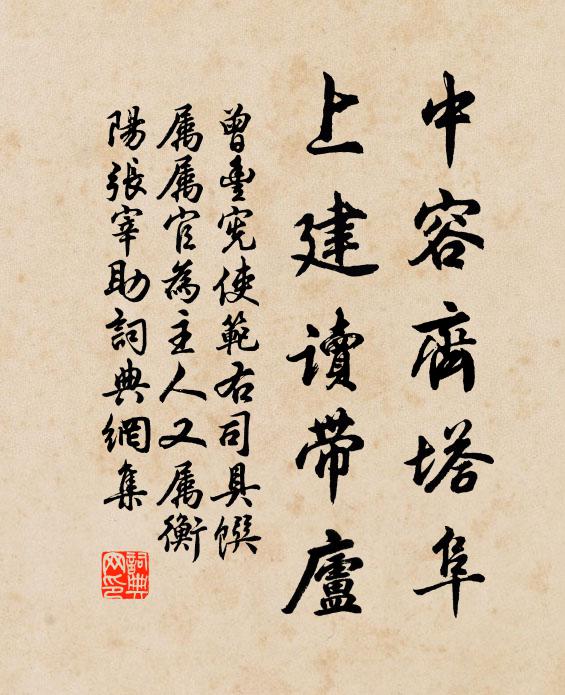 中容齋塔阜
上建讀帶廬
曾豊宪使範右司具饌
属属官為主人又属衡
陽張宰助詞典網集
詞典
网印